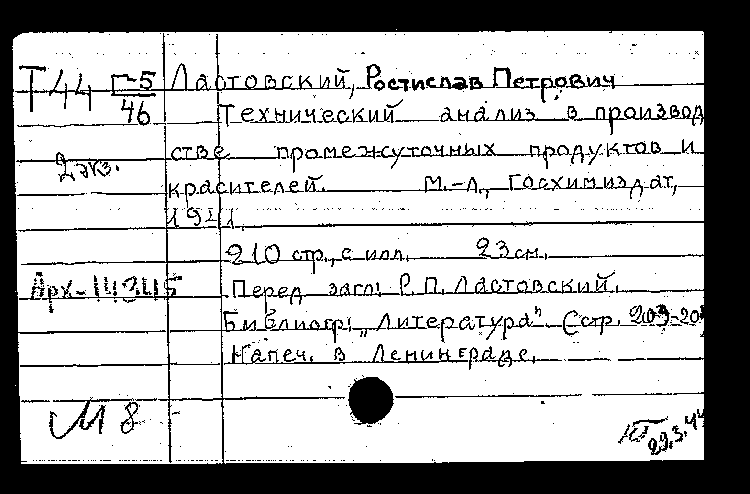 Т44 Г-5/46 Ластовский, Ростислав Петрович
Технический анализ в производ
2 экз. стве промежуточных продуктов и
красителей. М.-Л., Госхимиздат,
1941.
210 стр., с илл. 23 см.
Арх-14345 Перед загл: Р.П. Ластовский.
Библиогр: „Литература" (стр. 203-20
Напеч. в Ленинграде.
М 8
29.3.44